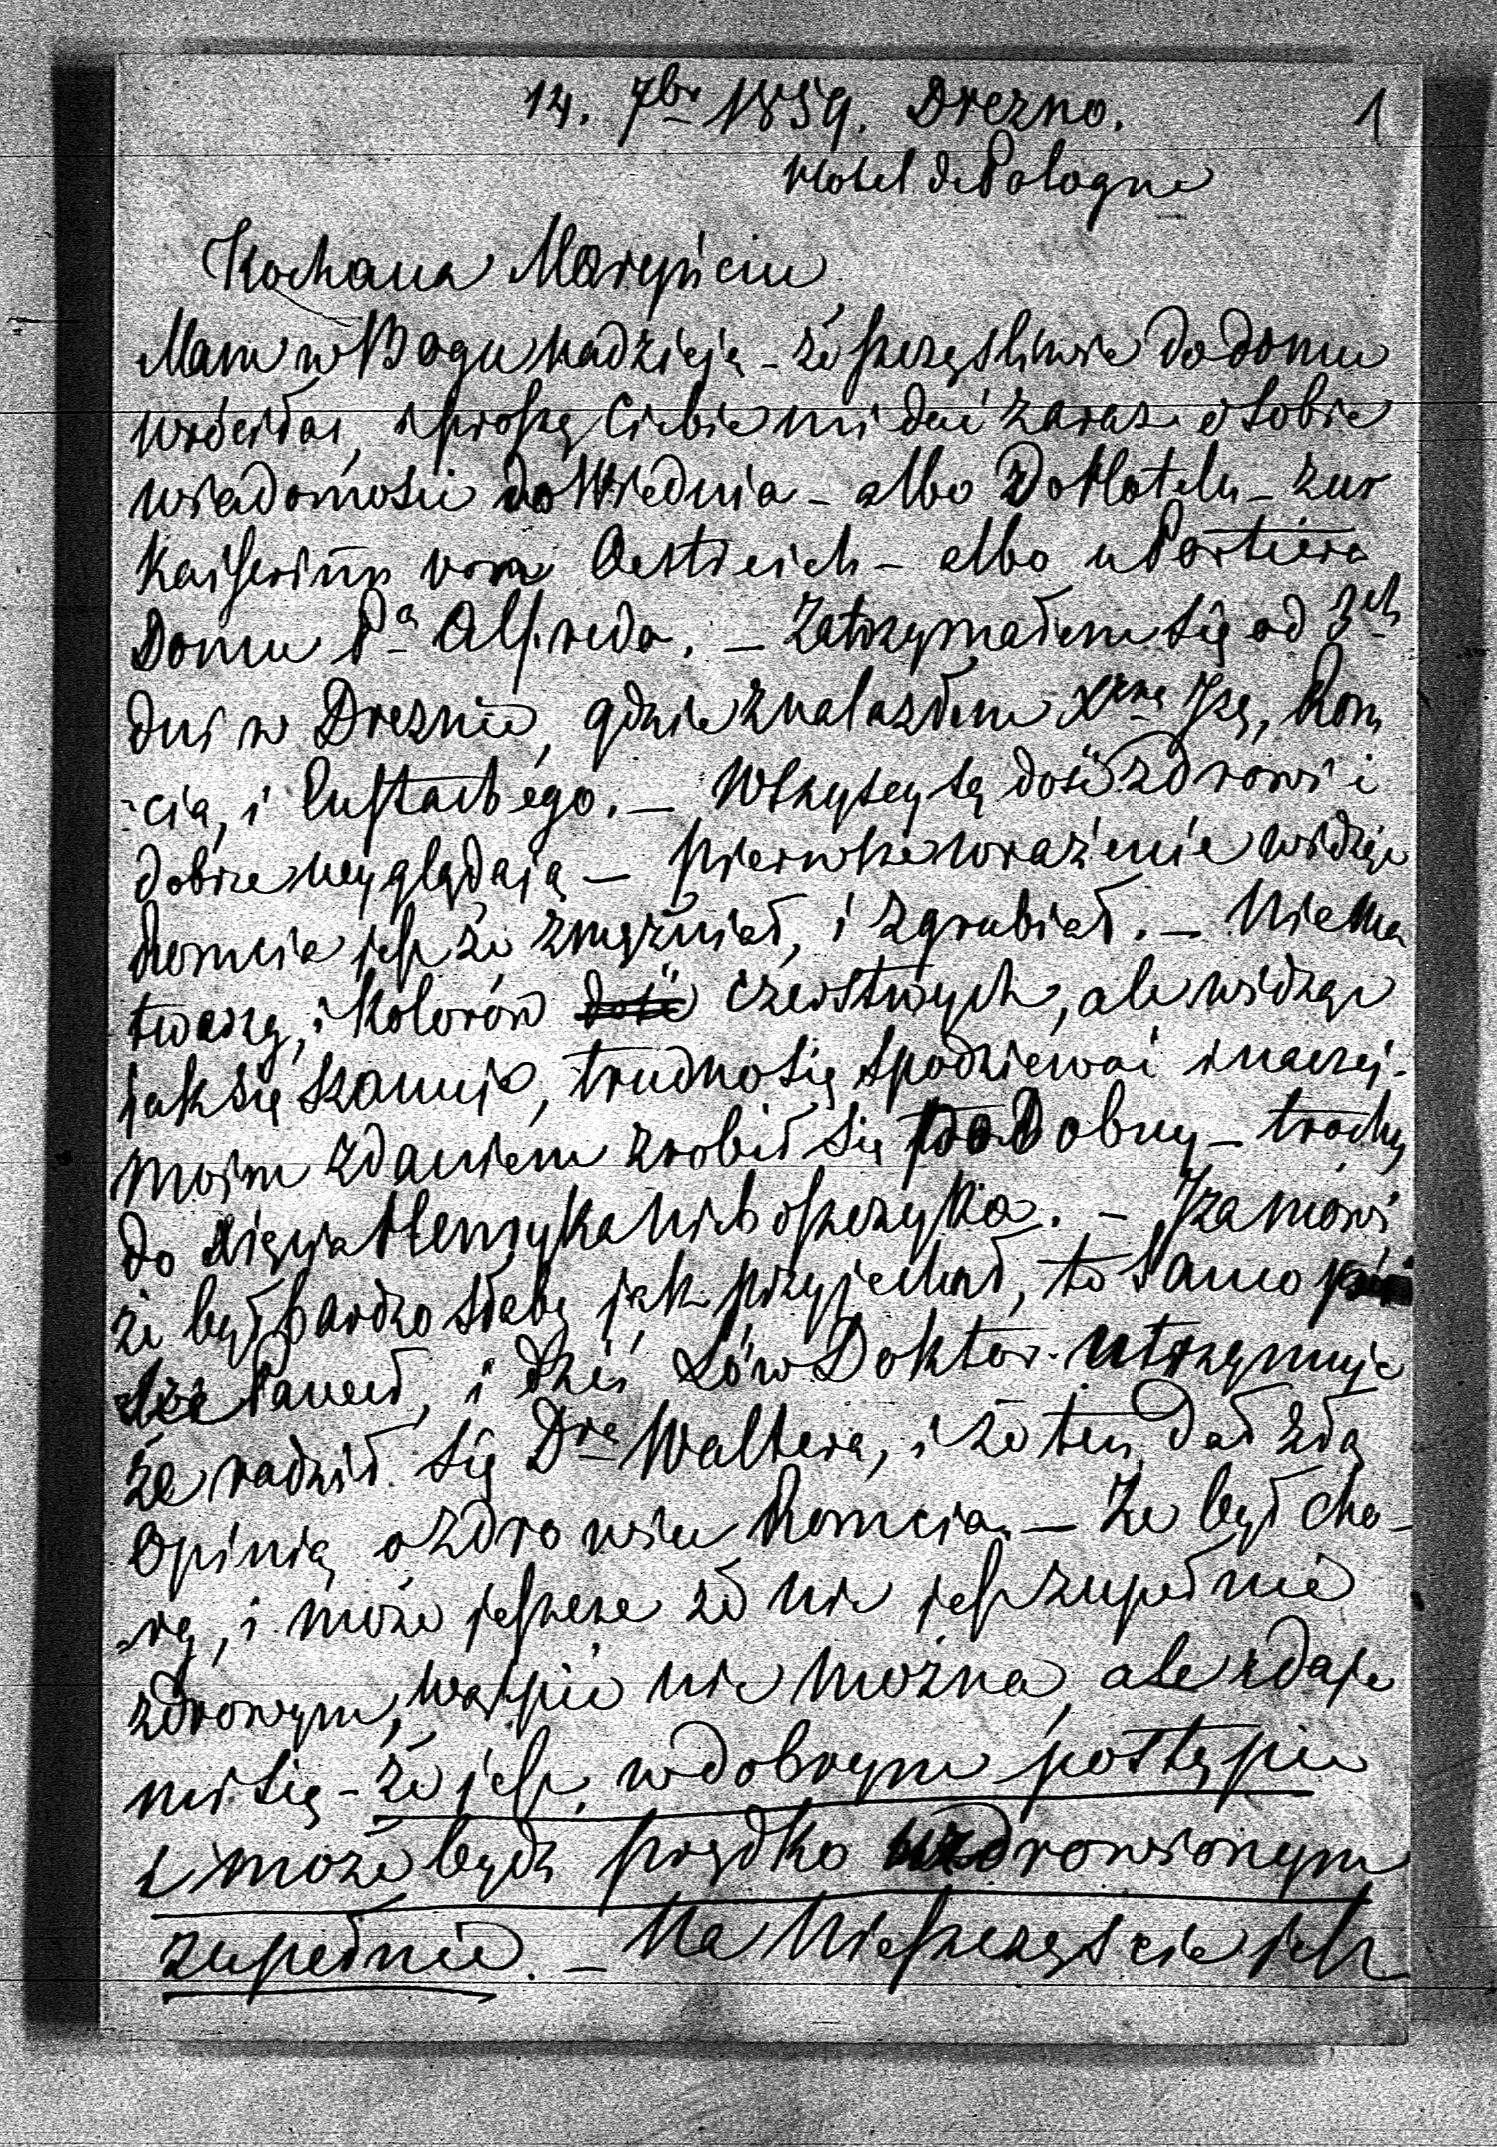 14. 7br 1859. Drezno. 1
Hotel de Pologne
Kochana Marysieńciu
Mam w Bogu nadzieją – że szczęśliwie do domu
wróciłaś, i proszę Ciebie mi dać zaraz o sobie
wiadomości do Wiednia – albo do Hotelu – zur
Kaiserinn von Oestreich – albo u Portiera
Domu Pa Alfreda. – Zatrzymałem się od 3ch
dni w Dreznie, gdzie znalazłem Xznę Izę, Rom
cia, i Eustachego. – Wszyscy są dość zdrowi i
dobrze wyglądają – pierwsze wrażenie widząc
Romcia jest że zmężniał, i zgrubiał. – Nie ma
twarzy, i kolorów dość czerstwych, ale widząc
jak się szanuje, trudno się spodziewać inaczej.
Moim zdaniem zrobił się podobny – trochy
do xięcia Henryka nieboszczyka. – Iza mówi
że był bardzo słaby jak przyjechał, to samo
Paweł, i dziś Lów Doktor utrzymuje
że radził się Dra Waltera, i że ten dał złą
opinią o zdrowiu Romcia. – Że był cho-
ry, i może jeszcze że nie jest zupełnie
zdrowym, wątpić nie można, ale zdaje
mi się – że jest w dobrym postępie
i może bydź prędko uzdrowionym
zupełnie. – Na nieszczęście jest